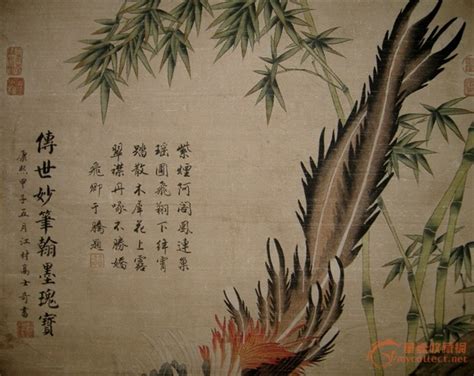 紫煙阿閣鳳連巢
瑶圃飛翔下絳霄
踏散木犀花上露
翠襟丹啄不勝嬌
飛卿于騰題
傳世妙筆翰墨瑰寶
康熙甲子五月江村高士奇書
mycollect.net